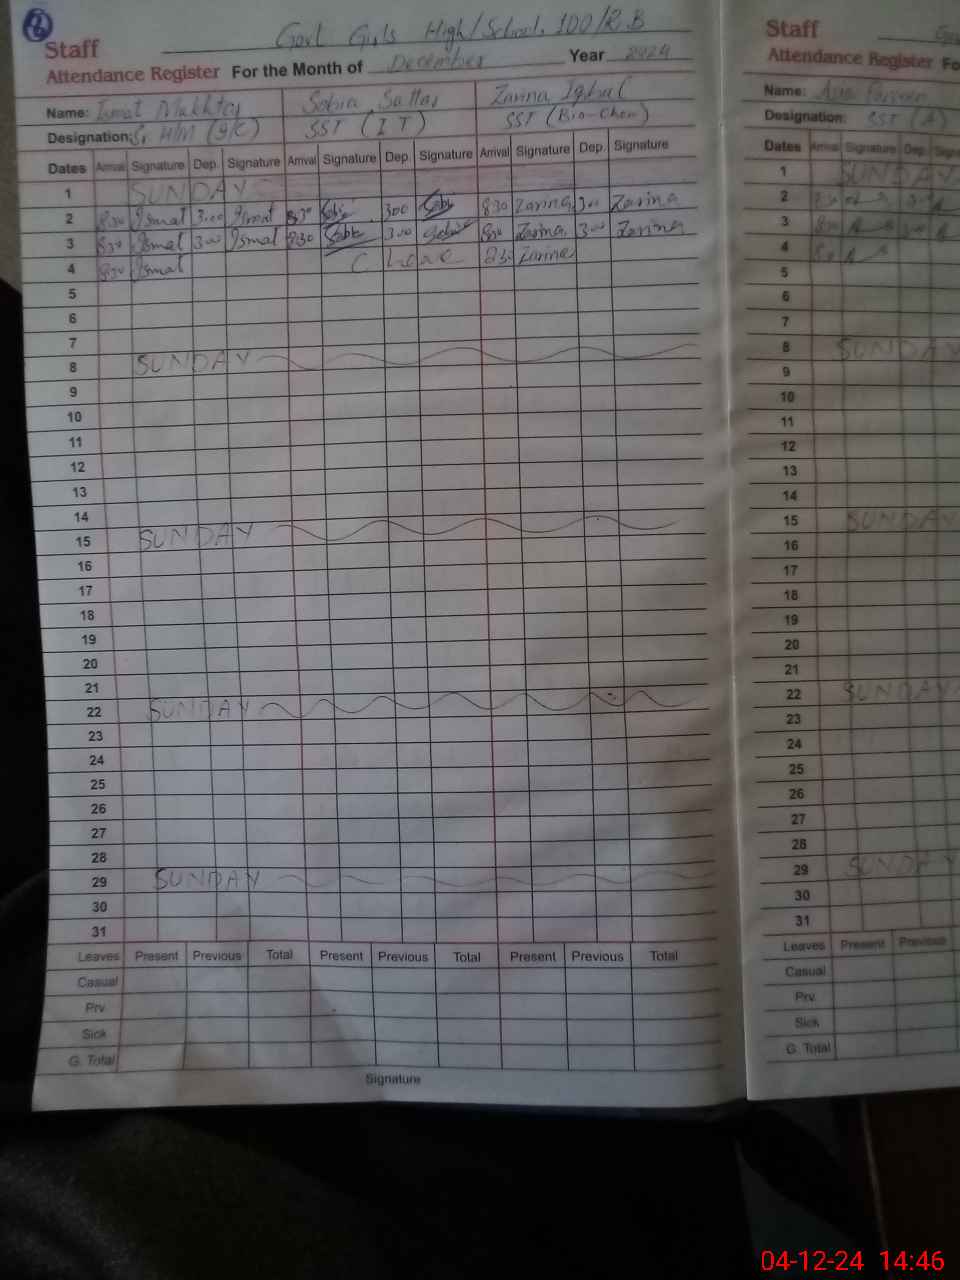 Govt Girls High/School. 100/R.B
Staff
Attendance Register For the Month of December Year 2024
Name: Ismat Mukhtar Sobia Sattar Zarina Iqbal
Designation: S. H/M (I/C) SST (I T) SST (Bio-Chem)
Dates Arrival Signature Dep. Signature Arrival Signature Dep. Signature Arrival Signature Dep. Signature
1 SUNDAY
2 8:30 Ismat 3:00 Ismat 8:30 300 830 Zarina 300 Zarina
3 8:30 Ismat 300 Ismat 830 300 830 Zarina 300 Zarina
4 830 Ismat C. Leave 830 Zarina
5
6
7
8 SUNDAY
9
10
11
12
13
14
15 SUNDAY
16
17
18
19
20
21
22 SUNDAY
23
24
25
26
27
28
29 SUNDAY
30
31
Leaves Present Previous Total Present Previous Total Present Previous Total
Casual
Prv.
Sick
G. Total
Signature
Staff
Attendance Register Fo
Name:
Designation: SST (A)
Dates Arrival Signature Dep.
1 SUNDAY
2
3
4
5
6
7
8 SUNDAY
9
10
11
12
13
14
15 SUNDAY
16
17
18
19
20
21
22 SUNDAY
23
24
25
26
27
28
29 SUNDAY
30
31
Leaves Present Previous
Casual
Prv.
Sick
G. Total
04-12-24 14:46